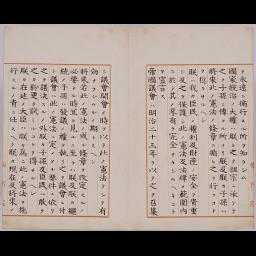 ヲ永遠ニ循行セシムル所ヲ知ラシム
國家統治ノ大權ハ朕カ之ヲ祖宗ニ承ケテ
之ヲ子孫ニ傳フル所ナリ朕及朕カ子孫ハ
將來此ノ憲法ノ條章ニ循ヒ之ヲ行フコト
ヲ愆ラサルヘシ
朕ハ我カ臣民ノ權利及財產ノ安全ヲ貴重
シ及之ヲ保護シ此ノ憲法及法律ノ範圍內
ニ於テ其ノ享有ヲ完全ナラシムヘキコト
ヲ宣言ス
帝國議會ハ明治二十三年ヲ以テ之ヲ召集
シ議會開會ノ時ヲ以テ此ノ憲法ヲシテ有
效ナラシムルノ期トスヘシ
將來若此ノ憲法ノ或ル條章ヲ改定スルノ
必要ナル時宜ヲ見ルニ至ラハ朕及朕カ繼
統ノ子孫ハ發議ノ權ヲ執リ之ヲ議會ニ付
シ議會ハ此ノ憲法ニ定メタル要件ニ依リ
之ヲ議決スルノ外朕カ子孫及臣民ハ敢テ
之カ紛更ヲ試ミルコトヲ得サルヘシ
朕カ在廷ノ大臣ハ朕カ爲ニ此ノ憲法ヲ施
行スルノ責ニ任スヘク朕カ現在及將來ノ